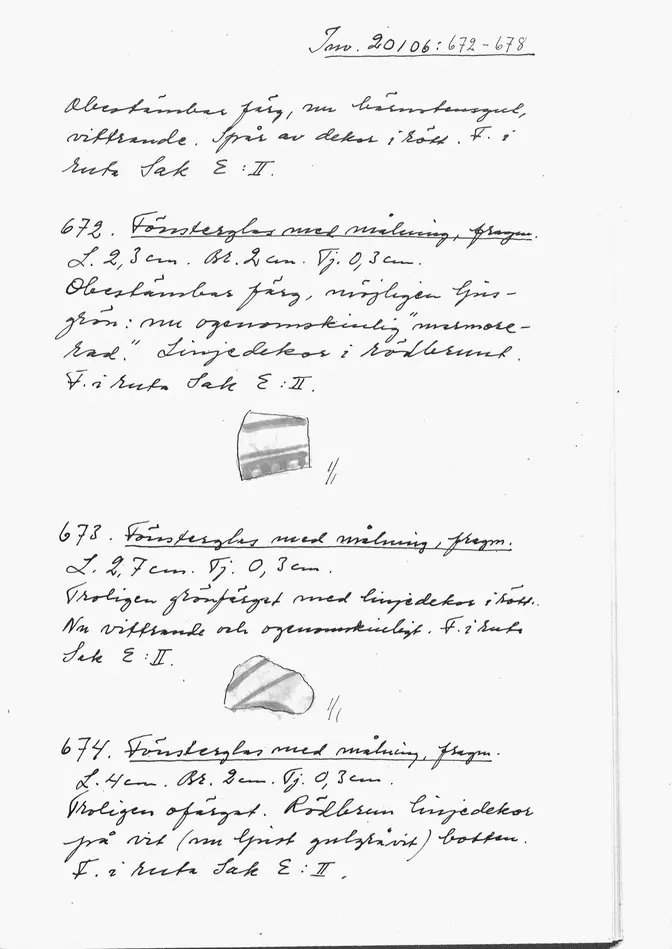 Inv. 20106:672-678
Obestämbar färg, nu bärnstensgul,
vittrande. Spår av dekor i rött. F. i
ruta Sak E:II.
672. Fönsterglas med målning, fragm.
L. 2,3 cm. Br. 2 cm. Tj. 0,3 cm.
Obestämbar färg, möjligen ljus-
grön: nu ogenomskinlig "marmore-
rad." Linjedekor i rödbrunt.
F. i ruta Sak E:II.
1/1
673. Fönsterglas med målning, fragm.
L. 2,7 cm. Tj. 0,3 cm.
Troligen grönfärgat med linjedekor i rött.
Nu vittrande och ogenomskinligt. F. i ruta
Sak E:II.
1/1
674. Fönsterglas med målning, fragm.
L. 4 cm. Br. 2 cm. Tj. 0,3 cm.
Troligen ofärgat. Rödbrun linjedekor
på vit (nu ljust gulgråvit) botten.
F. i ruta Sak E:II.